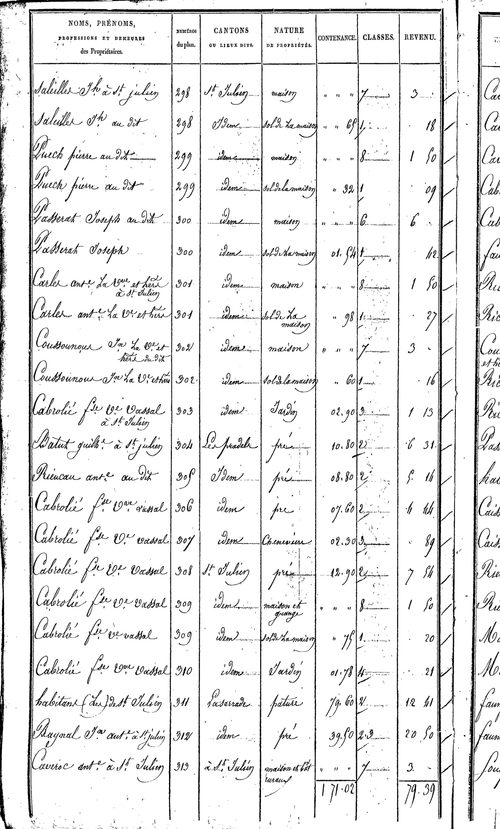 NOMS, PRÉNOMS, PROFESSIONS ET DEMEURES des Propriétaires. NUMÉROS du plan. CANTONS OU LIEUX DITS. NATURE DE PROPRIÉTÉS. CONTENANCE. CLASSES. REVENU.
Saleilles Jh à St julien 298 St Julien maison " " " 7 3 "
Saleilles Jh au dit 298 Idem sol de la maison " " 65 1 18
Puech pierre au dit 299 idem maison " " " 8 1 50
Puech pierre au dit 299 idem sol de la maison " 32 1 09
Passerat Joseph au dit 300 idem maison " " " 6 6
Passerat Joseph 300 idem sol de la maison 01.54 1 42
Carles ant.e La Vve et hérs à St Julien 301 idem maison " " " 8 1 50
Carles ant.e la Ve et hérs 301 idem sol de la maison " 98 1 27
Coussounous La Ve et hérs du dit 302 idem maison " " " 7 3
Coussounous La Ve et hérs 302 idem sol de la maison " 60 1 16
Cabrolié fse Ve Vassal à St Julien 303 idem Jardin 02.90 3 1 13
Batut guilhe à St julien 304 Le pradele pré 10.80 2 6 31
Rieucau ant.e au dit 305 Idem pré 08.80 2 5 14
Cabrolié fse Vve vassal 306 idem pre 07.60 2 4 44
Cabrolié fse Ve vassal 307 idem Cheneviere 02.30 3 89
Cabrolié fse Ve Vassal 308 St Julien pré 12.90 2 7 54
Cabrolié fse Ve vassal 309 idem maison et grange " " " 8 1 50
Cabrolié fse ve vassal 309 idem sol de la maison " 75 1 20
Cabrolié fse Vve vassal 310 idem Jardin 01.78 4 21
habitans (Les) de St Julien 311 Laserrade pature 79.60 2 12 41
Raynal ant.e à St julien 312 idem pré 39.50 2.3 20 50
Caveroc ant.e à St Julien 313 à St Julien maison et bat ruraux " " " 7 3
1 71.02 79.39